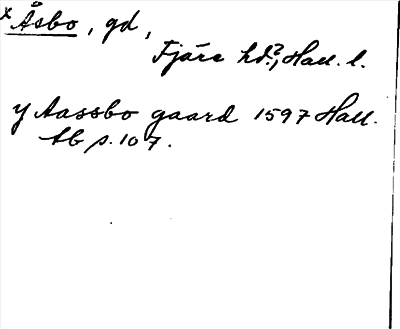 x Åsbo, gd,
Fjäre hd.?, Hall. l.
y Aassbo gaard 1597 Hall.
Ab p. 107.